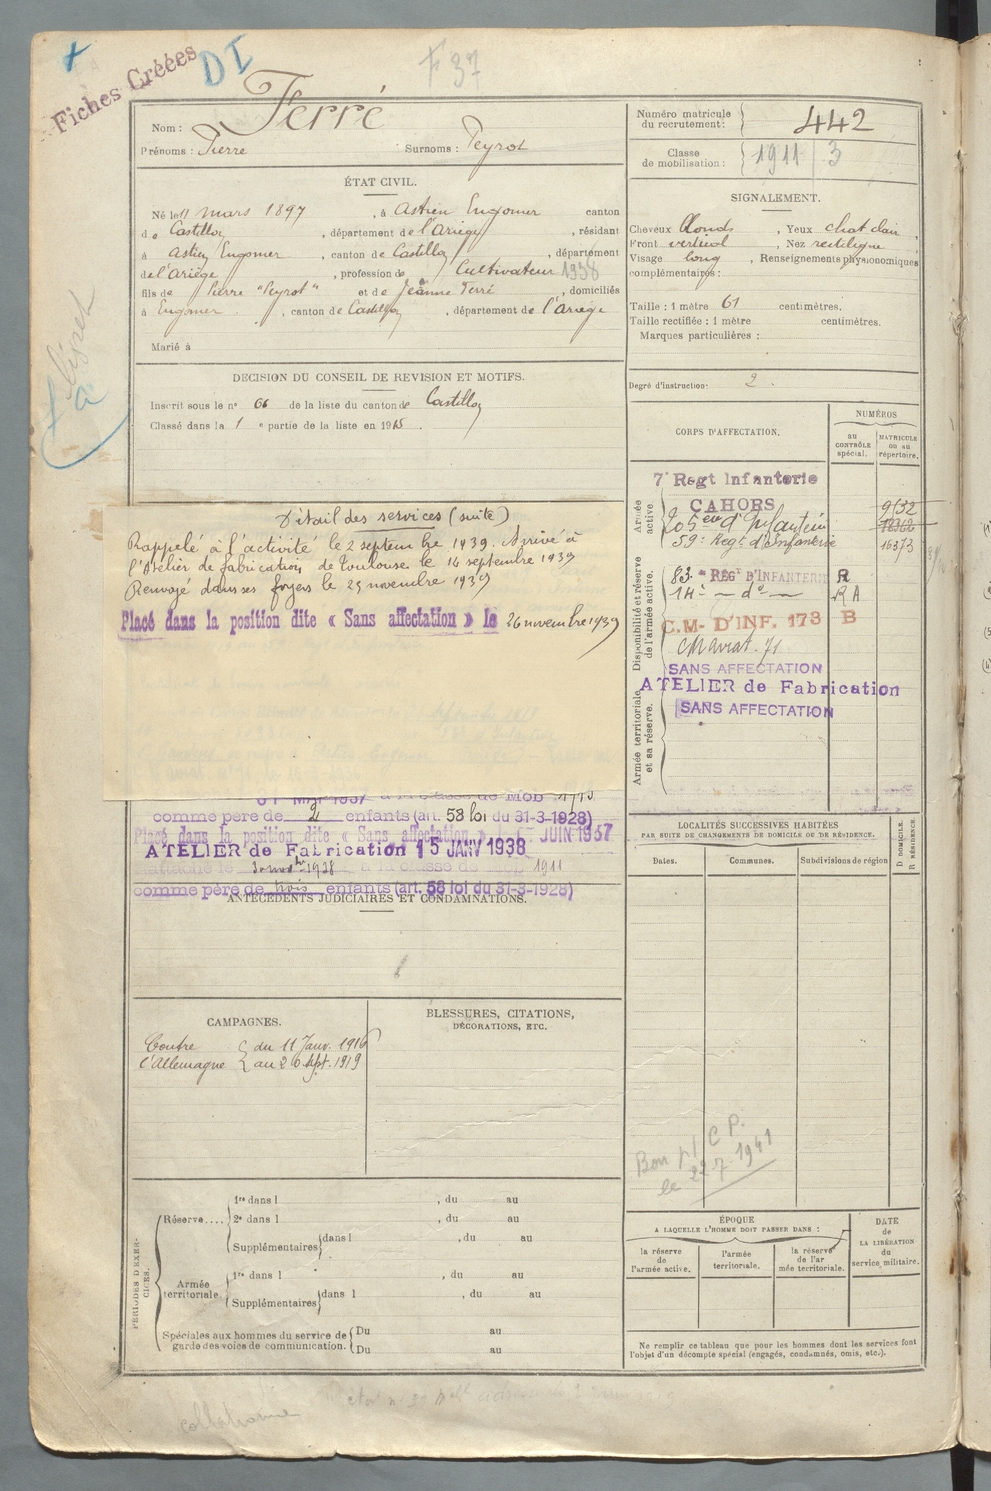 Fiches Créées
DI
F 37
Nom : Ferré
Prénoms : Pierre Surnoms : Peyrot
Numéro matricule du recrutement : 442
Classe de mobilisation : 1911 3
ÉTAT CIVIL.
Né le 11 mars 1897, à Astien Engomer canton
de Castillon, département de l'Ariège, résidant
à Astien Engomer, canton de Castillon, département
de l'Ariège, profession de Cultivateur 1938
fils de Pierre "Peyrot" et de Jeanne Ferré, domiciliés
à Engomer, canton de Castillon, département de l'Ariège
Marié à
SIGNALEMENT.
Cheveux blonds, Yeux chat clair,
Front vertical, Nez rectiligne
Visage long, Renseignements physionomiques
complémentaires :
Taille : 1 mètre 61 centimètres.
Taille rectifiée : 1 mètre centimètres.
Marques particulières :
Degré d'instruction : 2
DECISION DU CONSEIL DE REVISION ET MOTIFS.
Inscrit sous le n° 66 de la liste du canton de Castillon
Classé dans la 1 e partie de la liste en 1915.
Détail des services (suite)
Rappelé à l'activité le 2 septembre 1939. Arrivé à
l'Atelier de fabrication de Toulouse le 14 septembre 1939
Renvoyé dans ses foyers le 25 novembre 1939
Placé dans la position dite « Sans affectation » le 26 novembre 1939
MAI 1937 à la classe de Mob
comme père de 2 enfants (art. 58 loi du 31-3-1928)
Placé dans la position dite « Sans affectation » JUIN 1937
ATELIER de Fabrication 15 JANV 1938
à la classe de 1911
comme père de trois enfants (art. 58 loi du 31-3-1928)
ANTÉCÉDENTS JUDICIAIRES ET CONDAMNATIONS.
CORPS D'AFFECTATION.
NUMÉROS
au CONTRÔLE spécial.
MATRICULE OU AU répertoire.
Armée active
7e Regt Infanterie
CAHORS 9132
205 eme d'Infanterie
59e Regt d'Infanterie 16373
Disponibilité et réserve de l'armée active.
83e REGT D'INFANTERIE R
14e — do — R A
C.M- D'INF. 173 B
SANS AFFECTATION
Armée territoriale et sa réserve.
ATELIER de Fabrication
SANS AFFECTATION
LOCALITÉS SUCCESSIVES HABITÉES
PAR SUITE DE CHANGEMENTS DE DOMICILE OU DE RÉSIDENCE.
D DOMICILE.
R RÉSIDENCE.
Dates. Communes. Subdivisions de région
CAMPAGNES.
Contre { du 11 Janv. 1916
l'Allemagne { au 26 Sept. 1919
BLESSURES, CITATIONS,
DÉCORATIONS, ETC.
Bon pr C P.
le 22 7 1941
PÉRIODES D'EXERCICES.
Réserve....
1re dans l , du au
2e dans l , du au
Supplémentaires dans l , du au
Armée territoriale.
1re dans l , du au
Supplémentaires dans l , du au
Spéciales aux hommes du service de garde des voies de communication.
Du au
Du au
ÉPOQUE
A LAQUELLE L'HOMME DOIT PASSER DANS :
la réserve de l'armée active.
l'armée territoriale.
la réserve de l'armée territoriale.
DATE de LA LIBÉRATION du service militaire.
Ne remplir ce tableau que pour les hommes dont les services font
l'objet d'un décompte spécial (engagés, condamnés, omis, etc.).